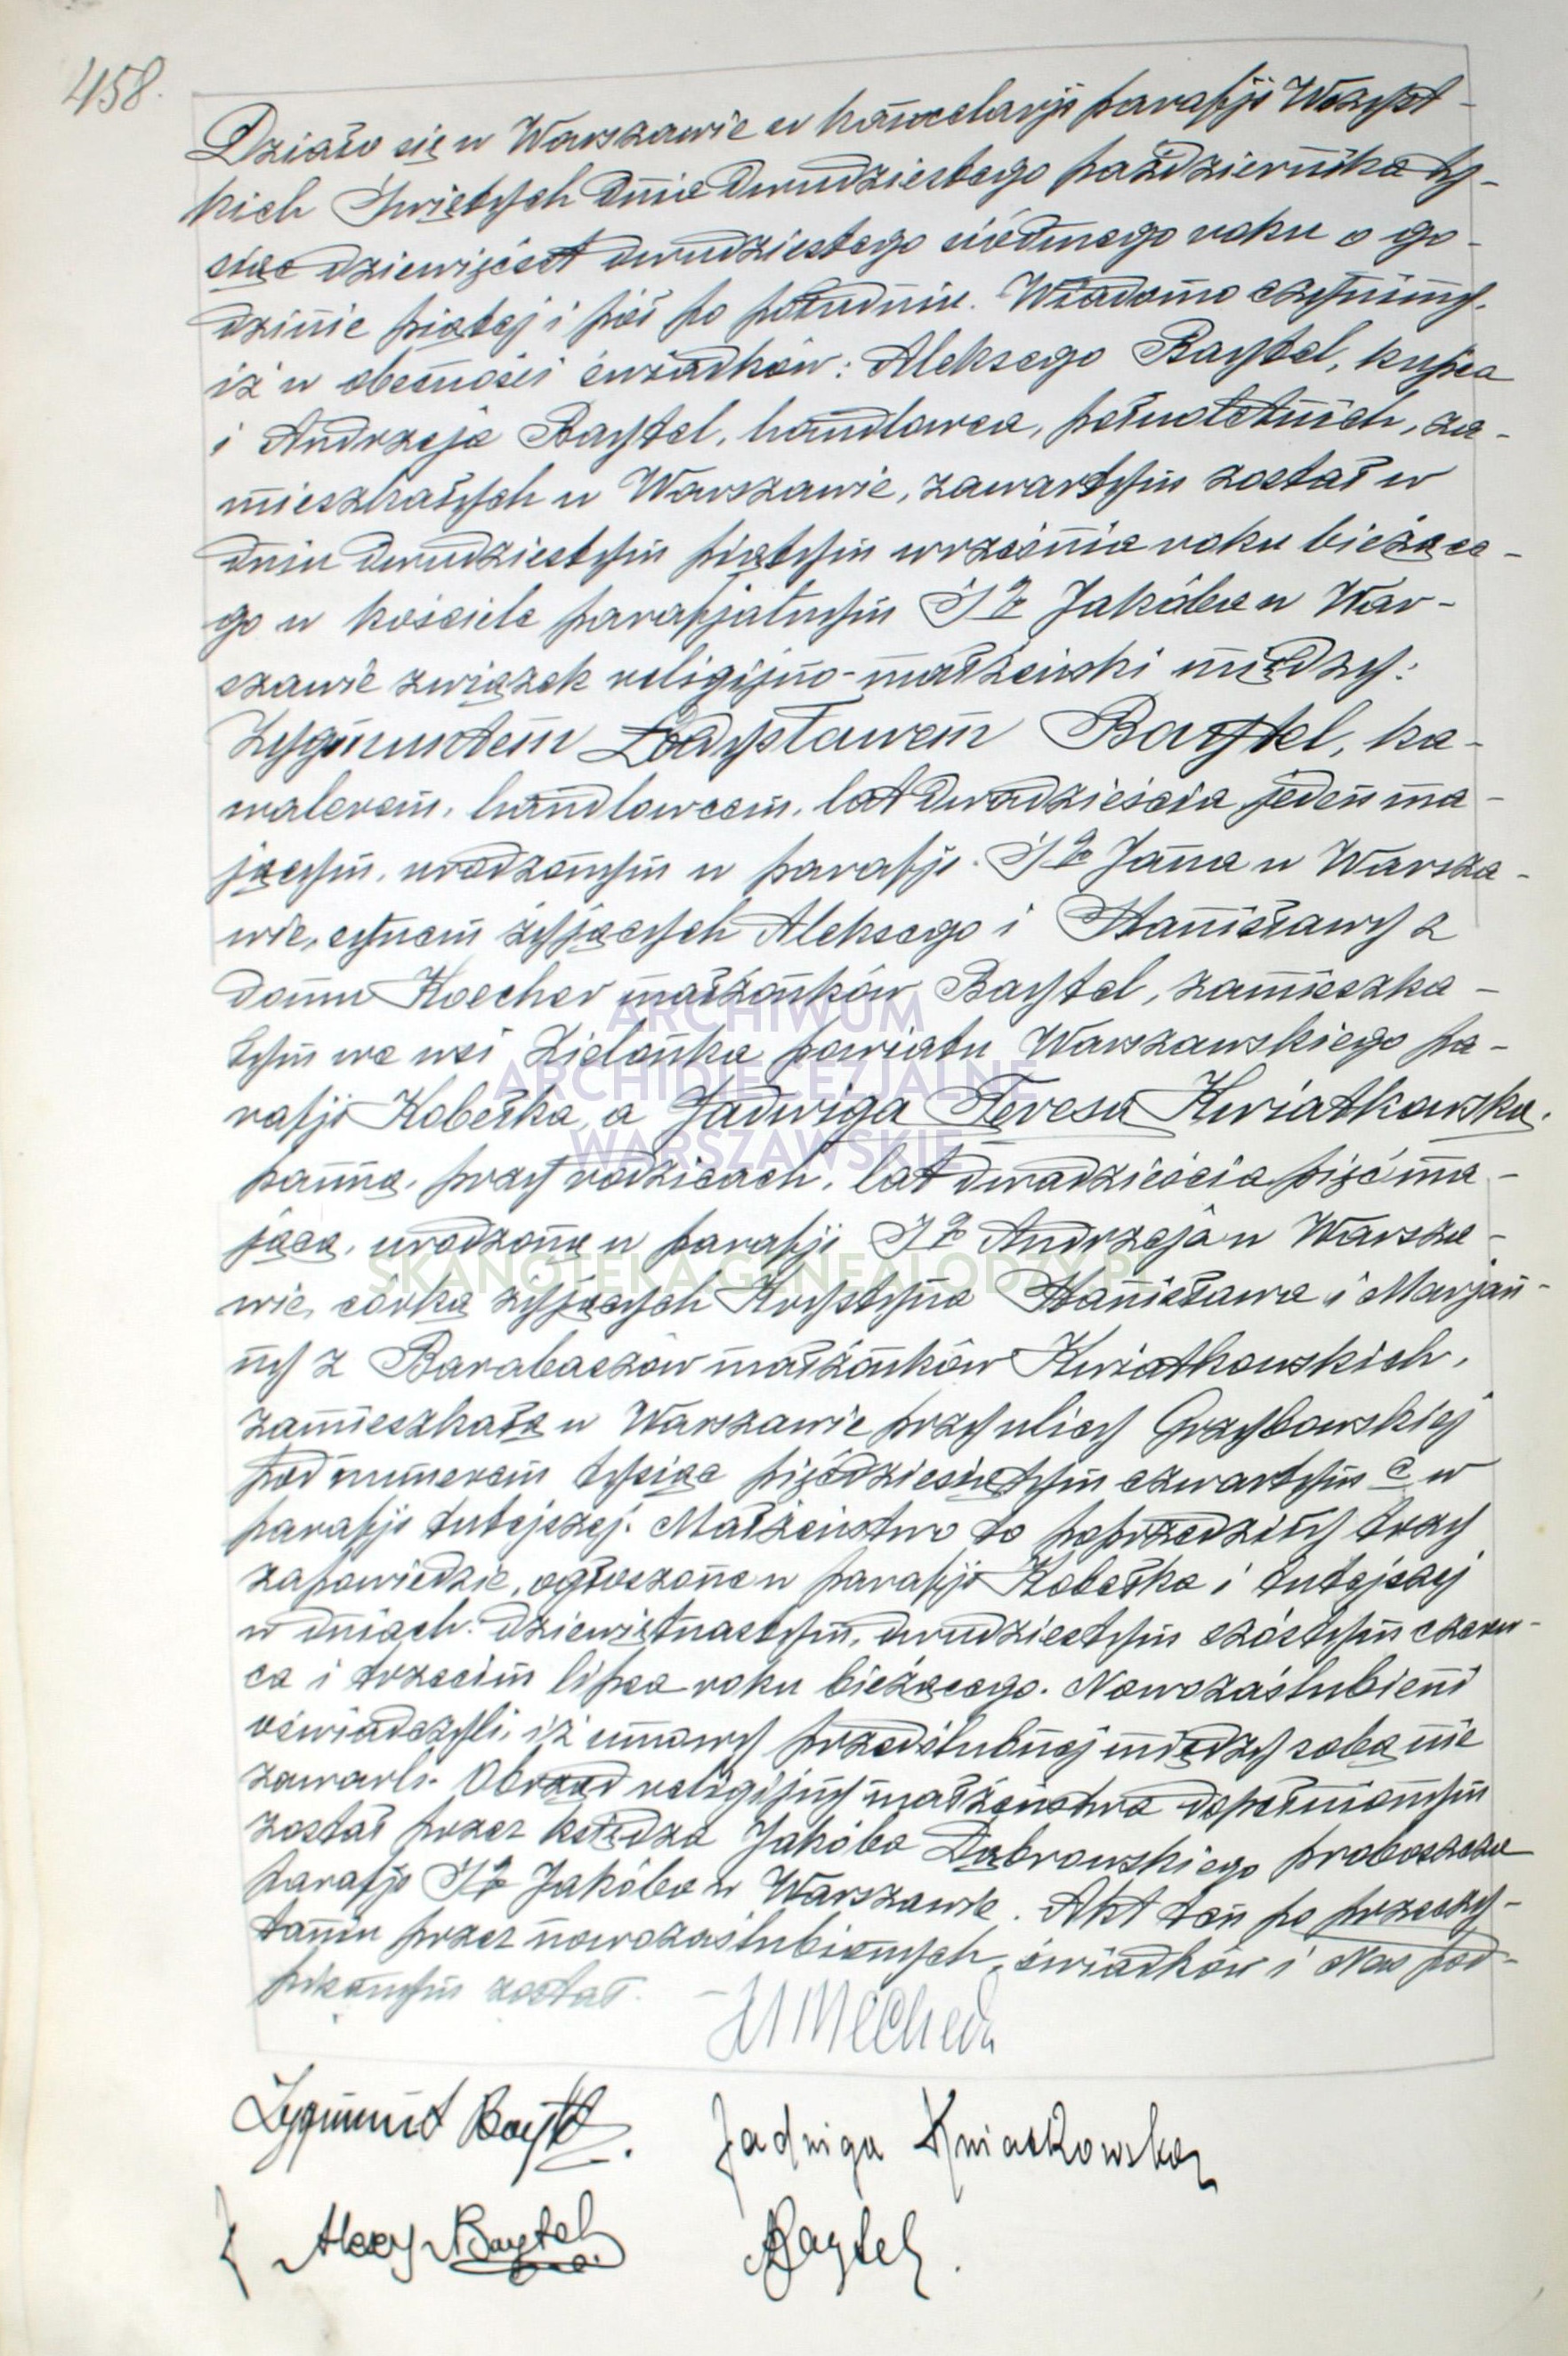 458.
Działo się w Warszawie w kancelarji parafji Wszyst-
kich Świętych dnia dwudziestego października ty-
siąc dziewięćset dwudziestego siódmego roku o go-
dzinie piątej i pół po południu. Wiadomo czynimy,
iż w obecności świadków: Aleksego Baytel, kupca
i Andrzeja Baytel, handlowca, pełnoletnich, za-
mieszkałych w Warszawie, zawartym został w
dniu dwudziestym piątym września roku bieżące-
go w kościele parafjalnym Sgo Jakóba w War-
szawie związek religijno-małżeński między:
Zygmuntem Ładysławem Baytel, ka-
walerem, handlowcem, lat dwadzieścia jeden ma-
jącym, urodzonym w parafji Sgo Jana w Warsza-
wie, synem żyjących Aleksego i Stanisławy z
domu Koecher małżonków Baytel, zamieszka-
łym we wsi Zielonka powiatu Warszawskiego pa-
rafji Kobełka, a Jadwigą Teresą Kwiatkowską,
panną, przy rodzicach, lat dwadzieścia pięć ma-
jącą, urodzoną w parafji Sgo Andrzeja w Warsza-
wie, córką żyjących Krystyna Stanisława i Marjan-
ny z Barabaszów małżonków Kwiatkowskich,
zamieszkałą w Warszawie przy ulicy Grzybowskiej
pod numerem tysiąc pięćdziesiątym czwartym c w
parafji tutejszej. Małżeństwo to poprzedziły trzy
zapowiedzie, ogłoszone w parafji Kobełka i tutejszej
w dniach: dziewiętnastym, dwudziestym szóstym czerw-
ca i trzecim lipca roku bieżącego. Nowozaślubieni
oświadczyli, iż umowy przedślubnej między sobą nie
zawarli. Obrzęd religijny małżeństwa dopełnionym
został przez księdza Jakóba Dąbrowskiego proboszcza
parafji Sgo Jakóba w Warszawie. Akt ten po przeczy-
taniu przez nowozaślubionych, świadków i Nas pod-
pisanym został.
Zygmunt Baytel.
Jadwiga Kwiatkowska
Alexy Baytel
ABaytel.
ARCHIWUM
ARCHIDIECEZJALNE
WARSZAWSKIE
SKANOTEKA.GENEALODZY.PL